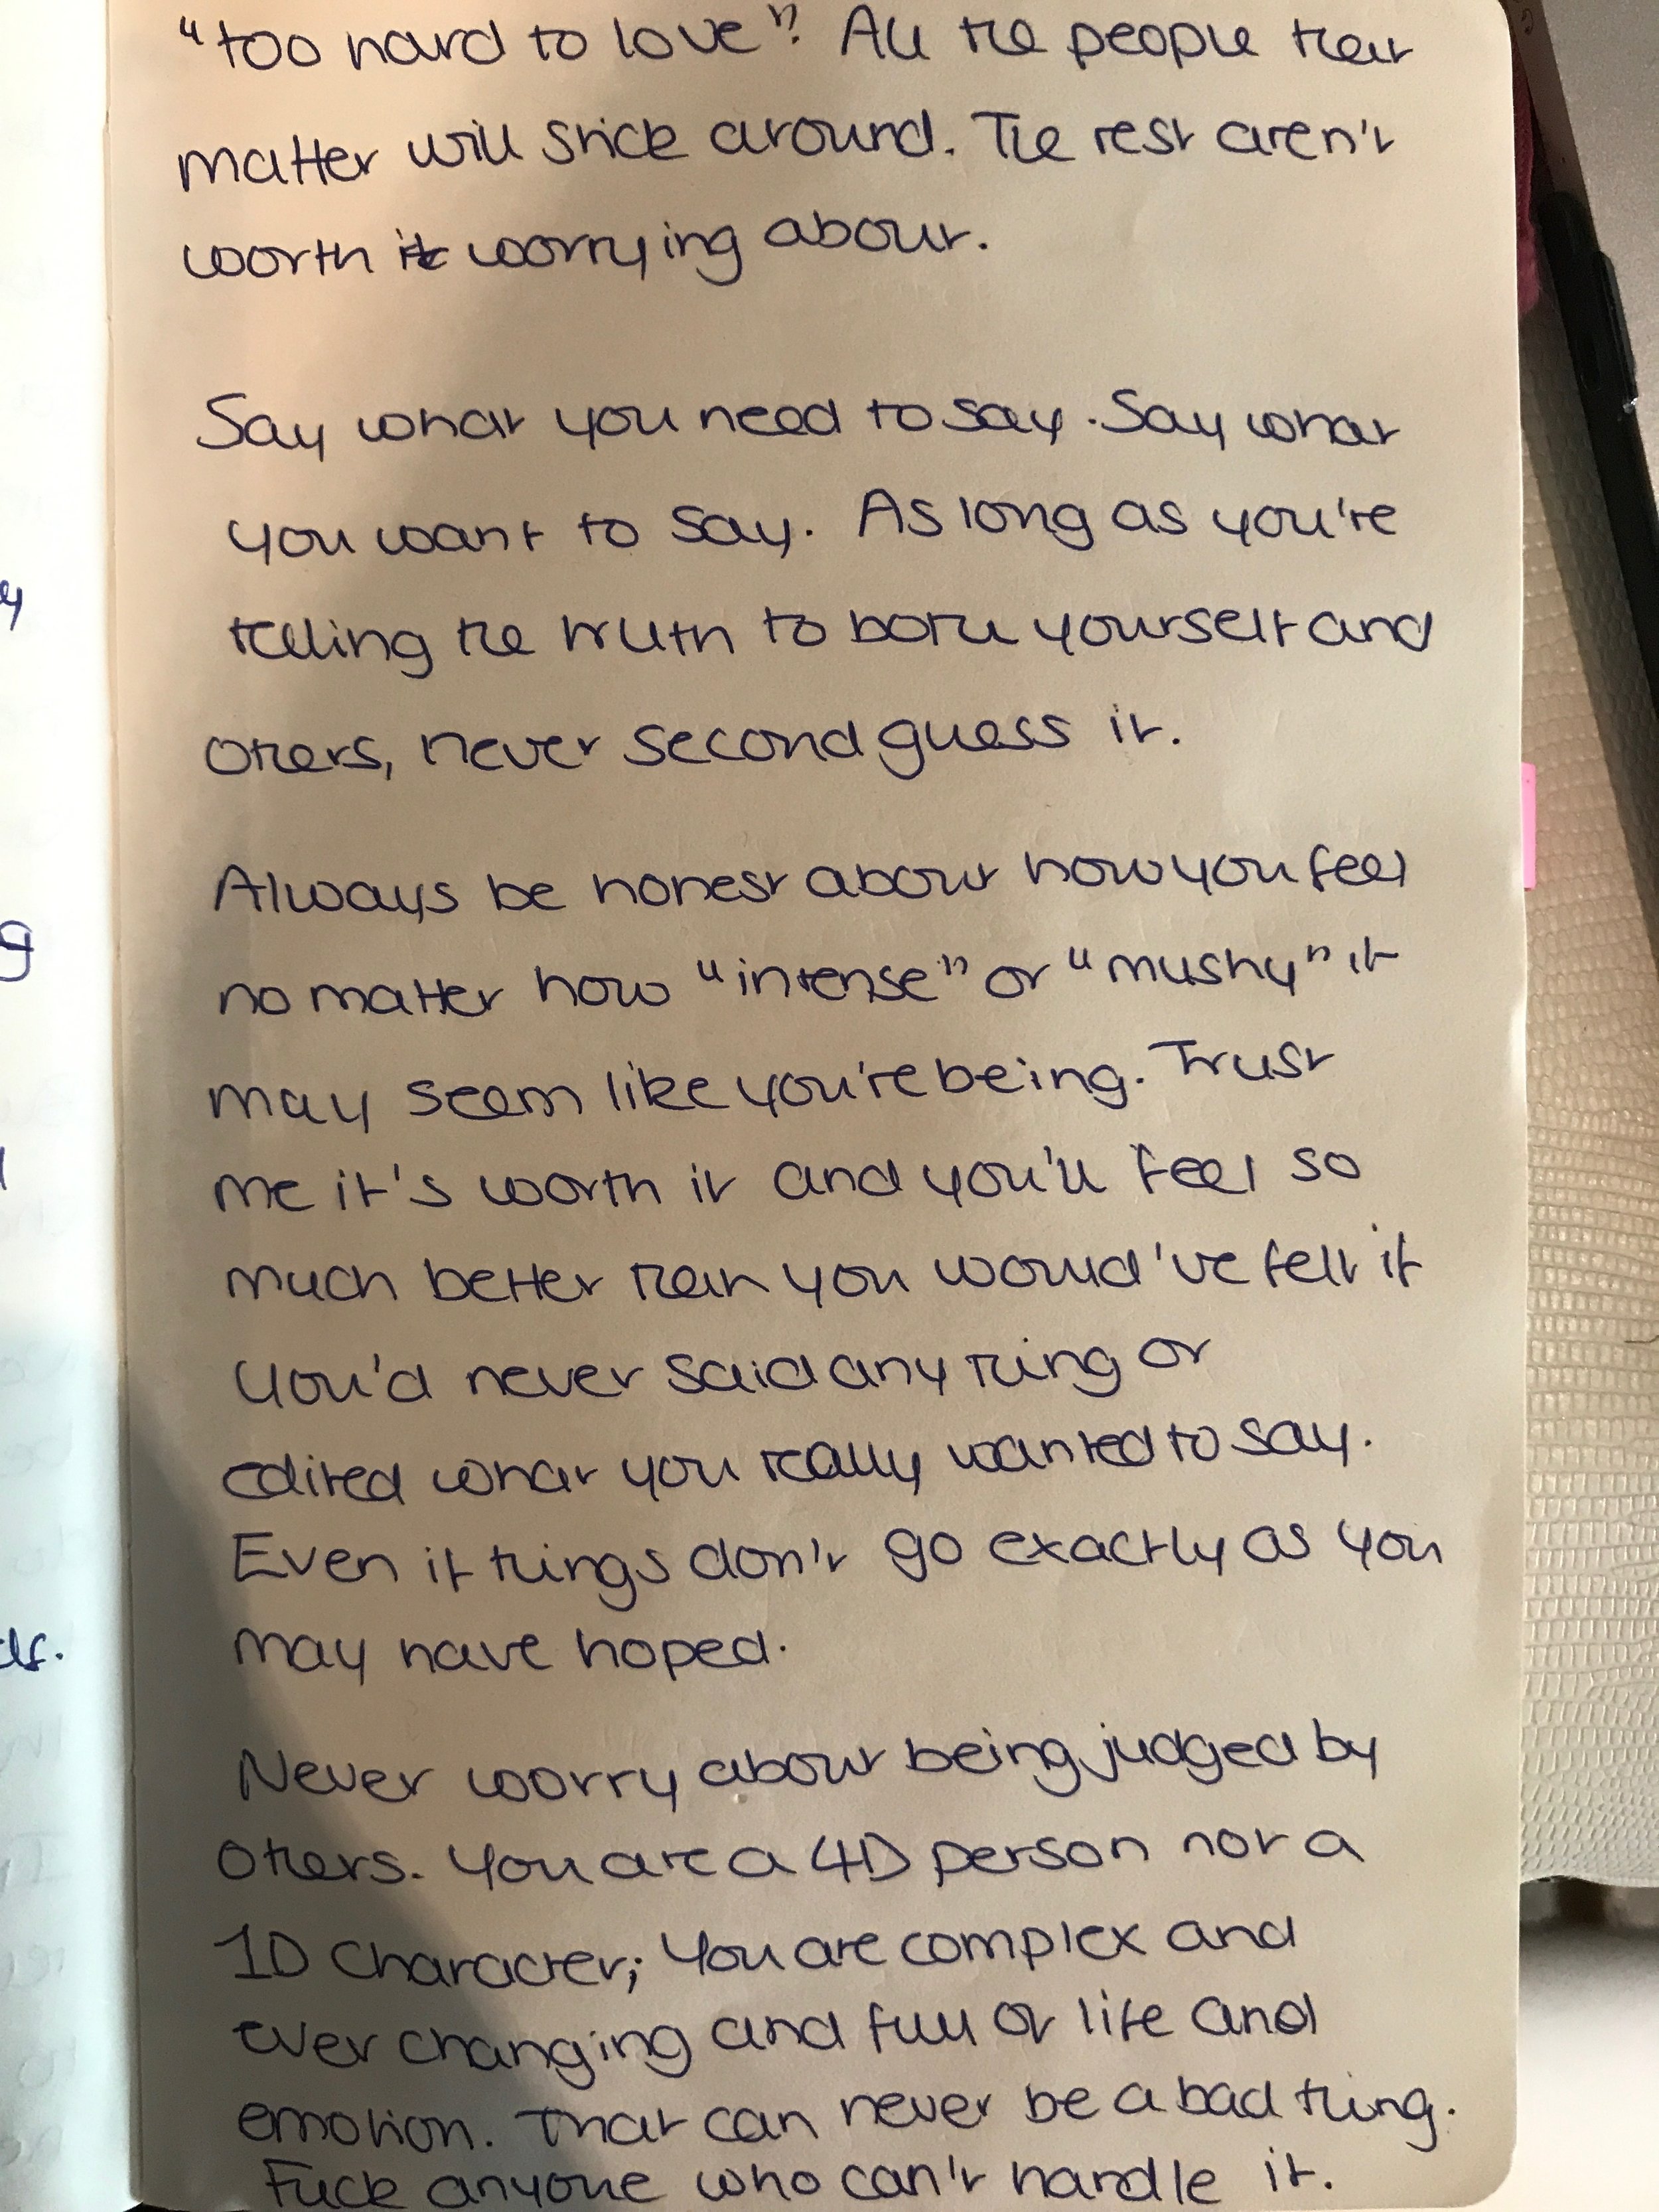 "too hard to love"? All the people that
matter will stick around. The rest aren't
worth it worrying about.
Say what you need to say. Say what
you want to say. As long as you're
telling the truth to both yourself and
others, never second guess it.
Always be honest about how you feel
no matter how "intense" or "mushy" it
may seem like you're being. Trust
me it's worth it and you'll feel so
much better than you would've felt if
you'd never said anything or
edited what you really wanted to say.
Even if things don't go exactly as you
may have hoped.
Never worry about being judged by
others. You are a 4D person not a
1D character; you are complex and
ever changing and full of life and
emotion. That can never be a bad thing.
Fuck anyone who can't handle it.